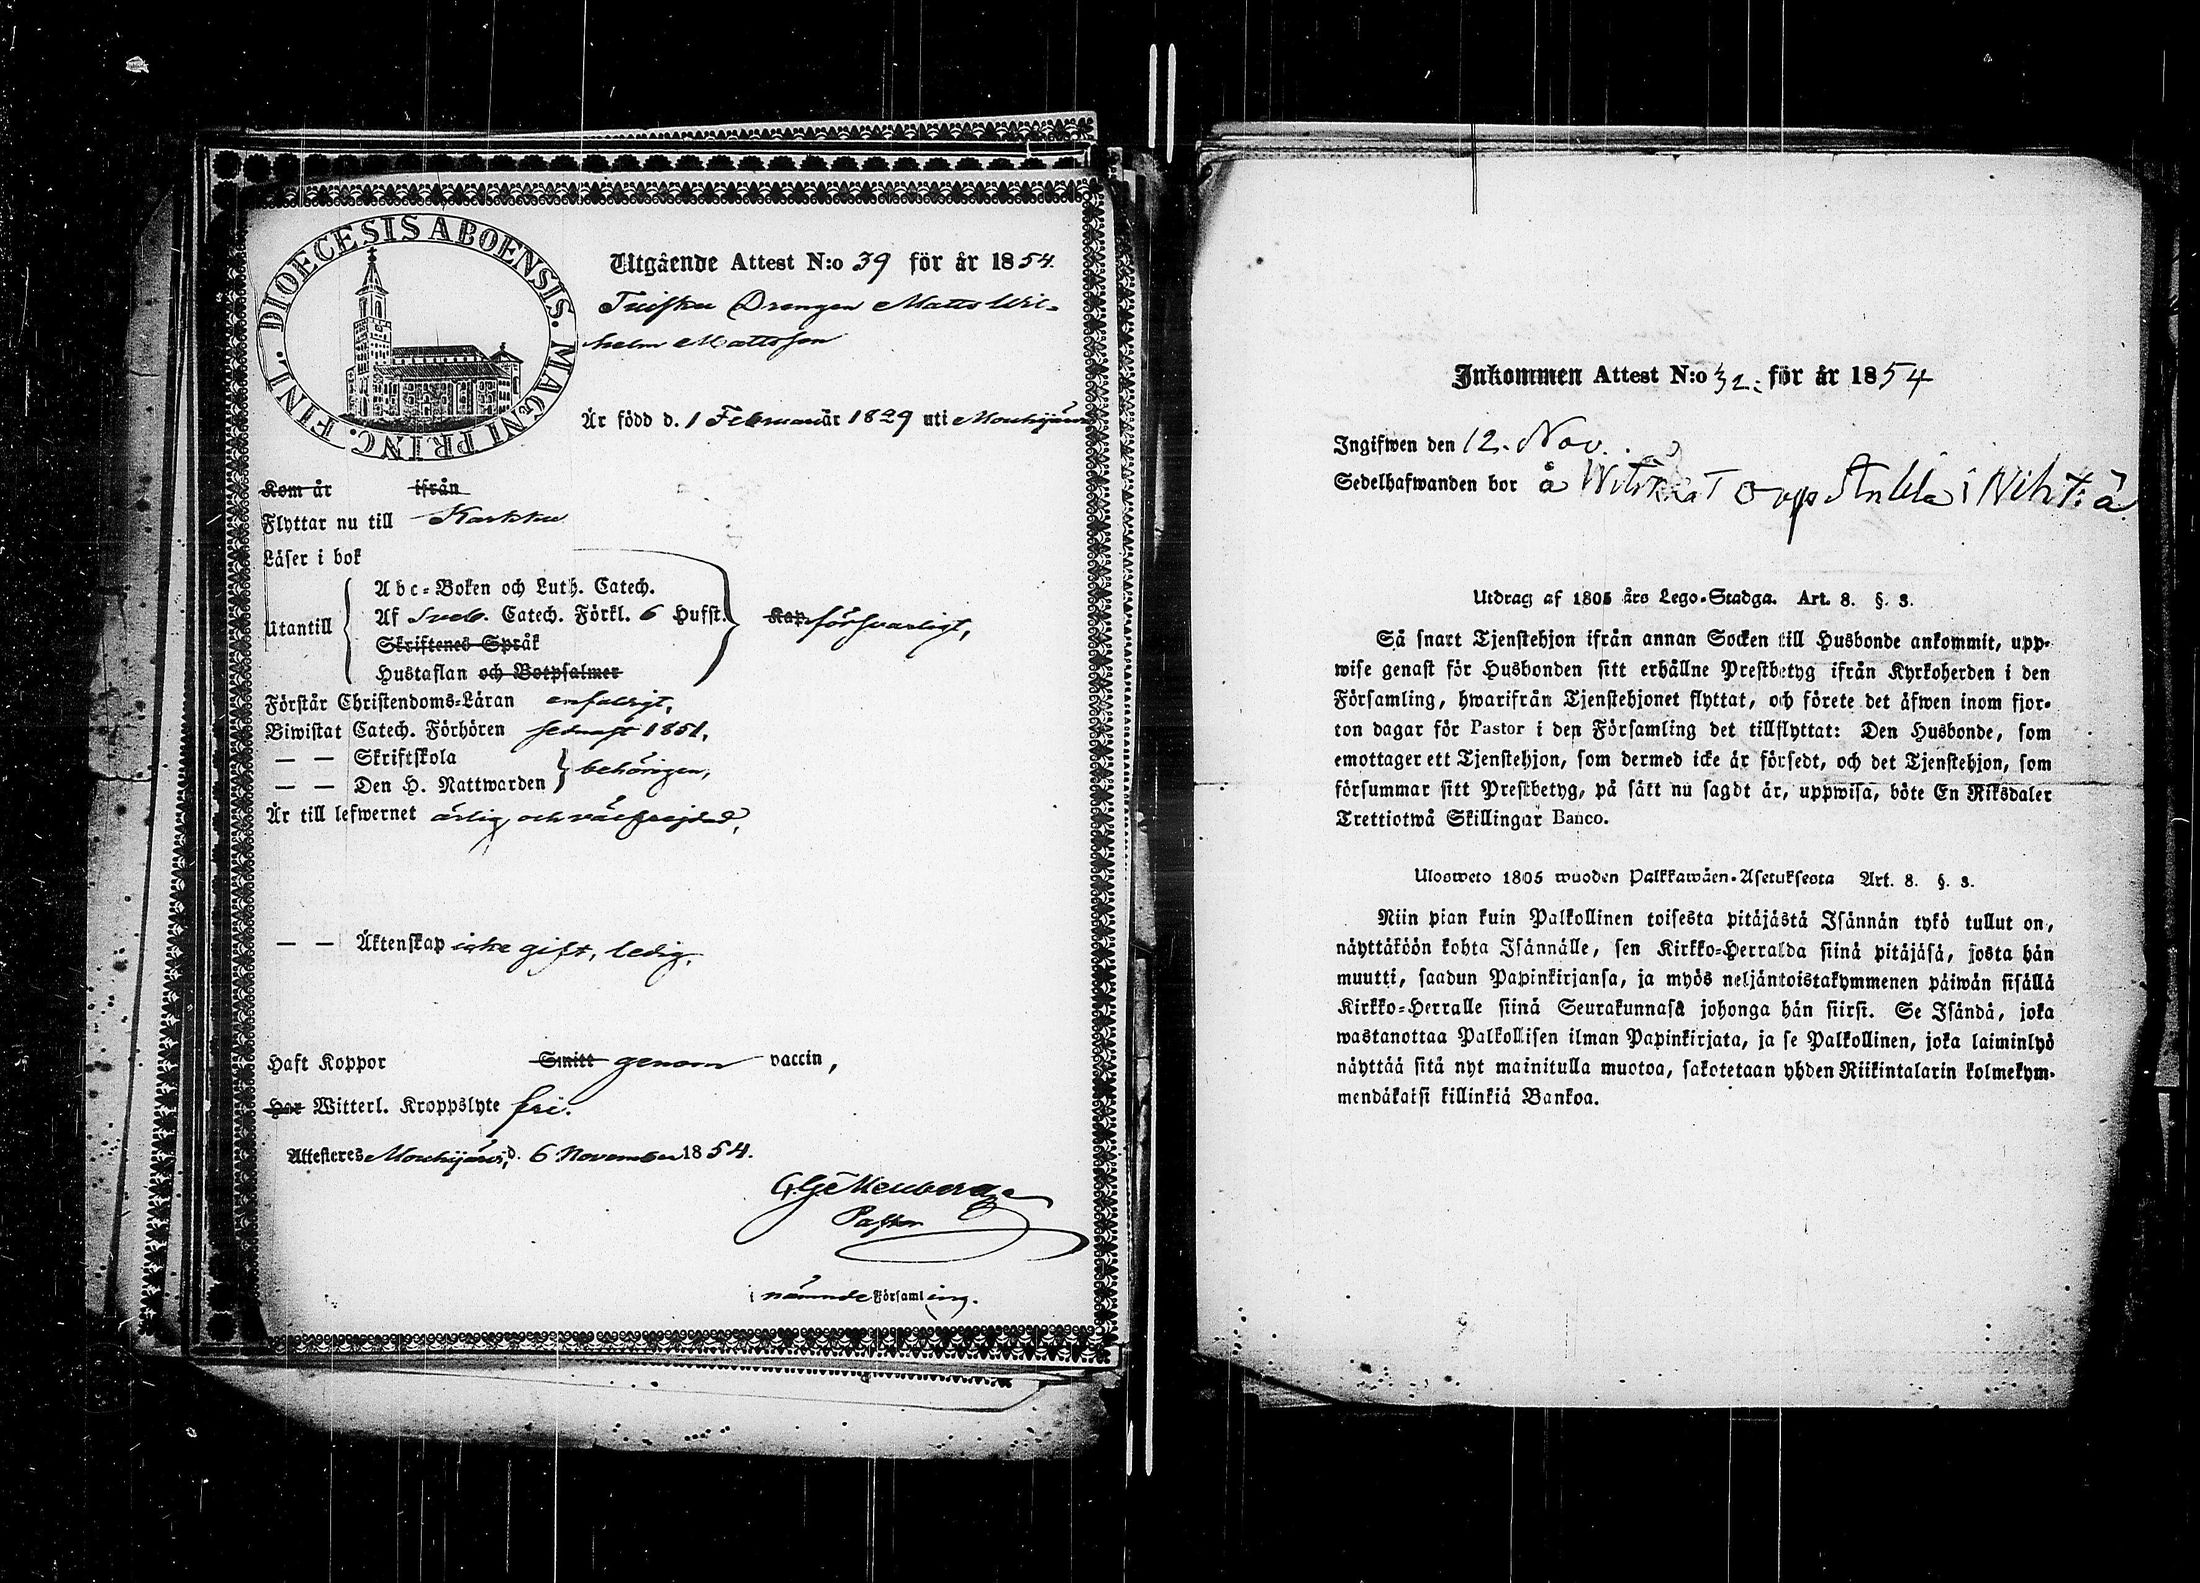 DIOECESIS ABOENSIS. MAGNI PRINC. FINL.
Utgående Attest N:o 39 för år 1854.
Drengen Matts Wil-
helm Mattsson
Är född d. 1 Februariär 1829 uti Mouhijärvi
Kom år ifrån
Flyttar nu till Karkku
Läser i bok
Utantill
Abc-Boken och Luth. Catech.
Af Sveb. Catech. Förkl. 6 Hufst.
Skriftenes Språk
Hustaflan och Botpsalmer
Kap försvarligt,
Förstår Christendoms-Läran enfaldigt,
Biwistat Catech. Förhören sednast 1851,
— — Skriftskola
— — Den H. Nattwarden
behörigen,
Är till lefwernet ärlig och välfrejdad,
— — Äktenskap icke gift, ledig.
Haft Koppor Smitt genom vaccin,
Har Witterl. Kroppslyte fri.
Attesteres Mouhijärvi, d. 6 November 1854.
Pastor
i nämnde Församling.
Inkommen Attest N:o 32: för år 1854
Ingifwen den 12. Nov.
Sedelhafwanden bor å i
Utdrag af 1805 års Lego-Stadga. Art. 8. §. 3.
Så snart Tjenstehjon ifrån annan Socken till Husbonde ankommit, upp-
wise genast för Husbonden sitt erhållne Prestbetyg ifrån Kyrkoherden i den
Församling, hwarifrån Tjenstehjonet flyttat, och förete det äfwen inom fjor-
ton dagar för Pastor i den Församling det tillflyttat: Den Husbonde, som
emottager ett Tjenstehjon, som dermed icke är försedt, och det Tjenstehjon, som
försummar sitt Prestbetyg, på sätt nu sagdt är, uppwisa, böte En Riksdaler
Trettiotwå Skillingar Banco.
Ulosweto 1805 wuoden Palkkawäen-Asetuksesta Art. 8. §. 3.
Niin pian kuin Palkollinen toisesta pitäjästä Isännän tykö tullut on,
näyttäköön kohta Isännälle, sen Kirkko-Herralda siinä pitäjäsä, josta hän
muutti, saadun Papinkirjansa, ja myös neljäntoistakymmenen päiwän sisällä
Kirkko-Herralle siinä Seurakunnasa johonga hän siirsi. Se Isändä, joka
wastanottaa Palkollisen ilman Papinkirjata, ja se Palkollinen, joka laiminlyö
näyttää sitä nyt mainitulla muotoa, sakotetaan yhden Riikintalarin kolmekym-
mendäkaksi killinkiä Bankoa.